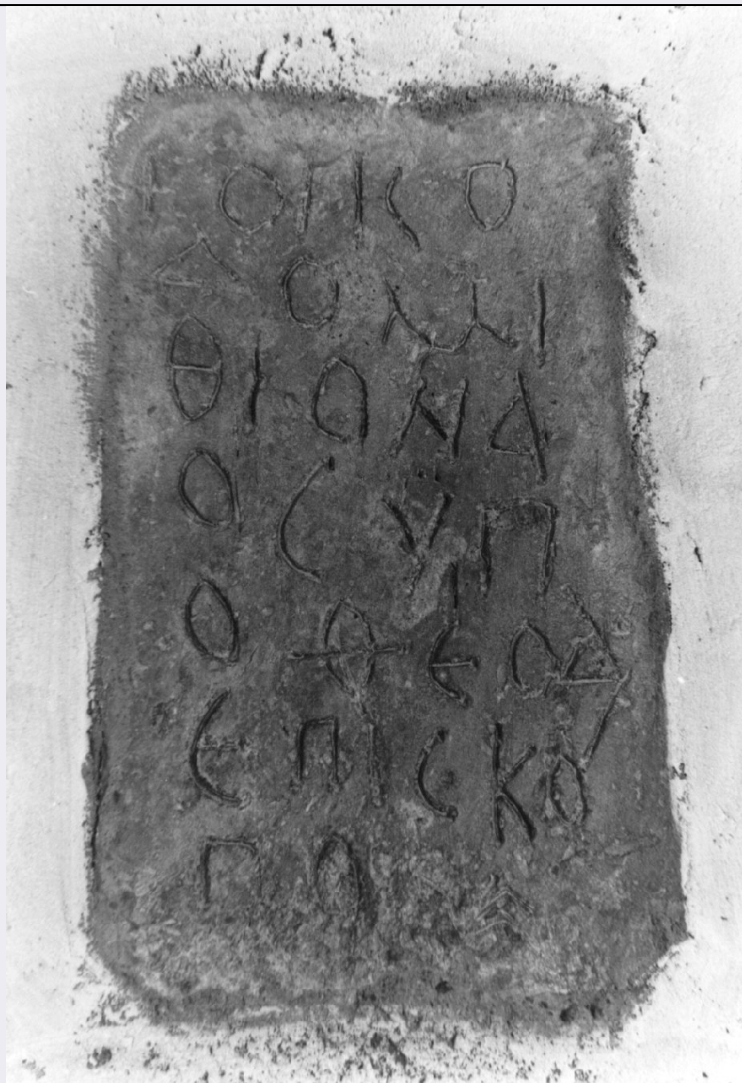 + ΟΙΚΟ
ΔΟΜΙ
ΘΙΟΝΑ
ΟϹΫΠ
ΟΘΕΟΔ
ΕΠΙϹΚΟ
ΠΟ